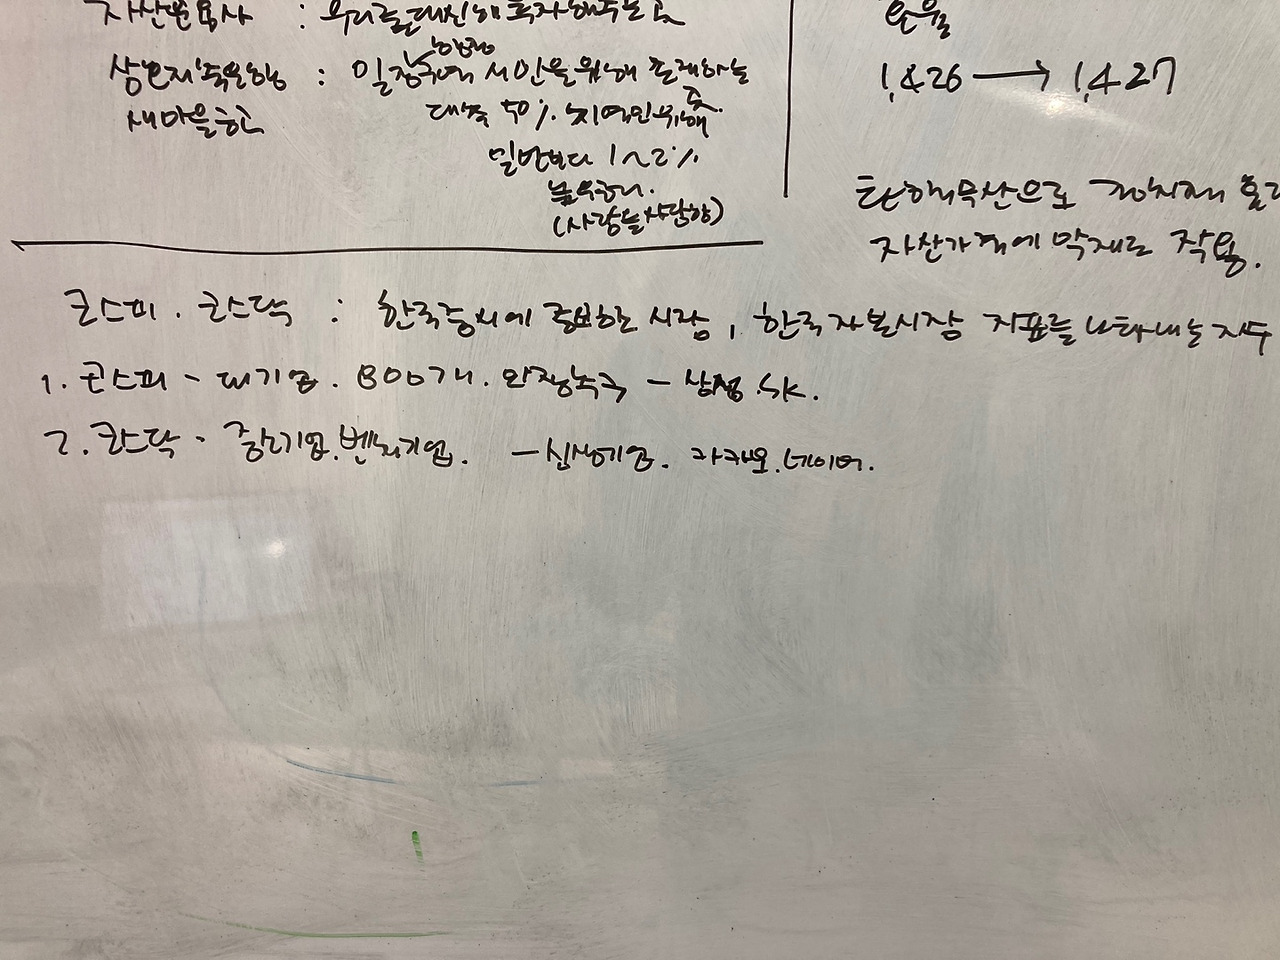 자산운용사 : 우리를 대신해 투자해주는 곳
상호저축은행 : 일정 서민을 위해 존재하는
새마을금고
대출 50%. 지역민 위해
일반보다 1~2%
높
(사람들
환율
1,426 → 1,427
탄핵무산으로 정치재
자산가격에 악재로 작용.
코스피. 코스닥 : 한국증시에 존재하는 시장, 한국자본시장 지표를 나타내는 지수
1. 코스피 - 대기업. 800개. 안정 - 삼성. SK.
2. 코스닥 - 중소기업. 벤처기업. - 신생기업. 카카오. 네이버.